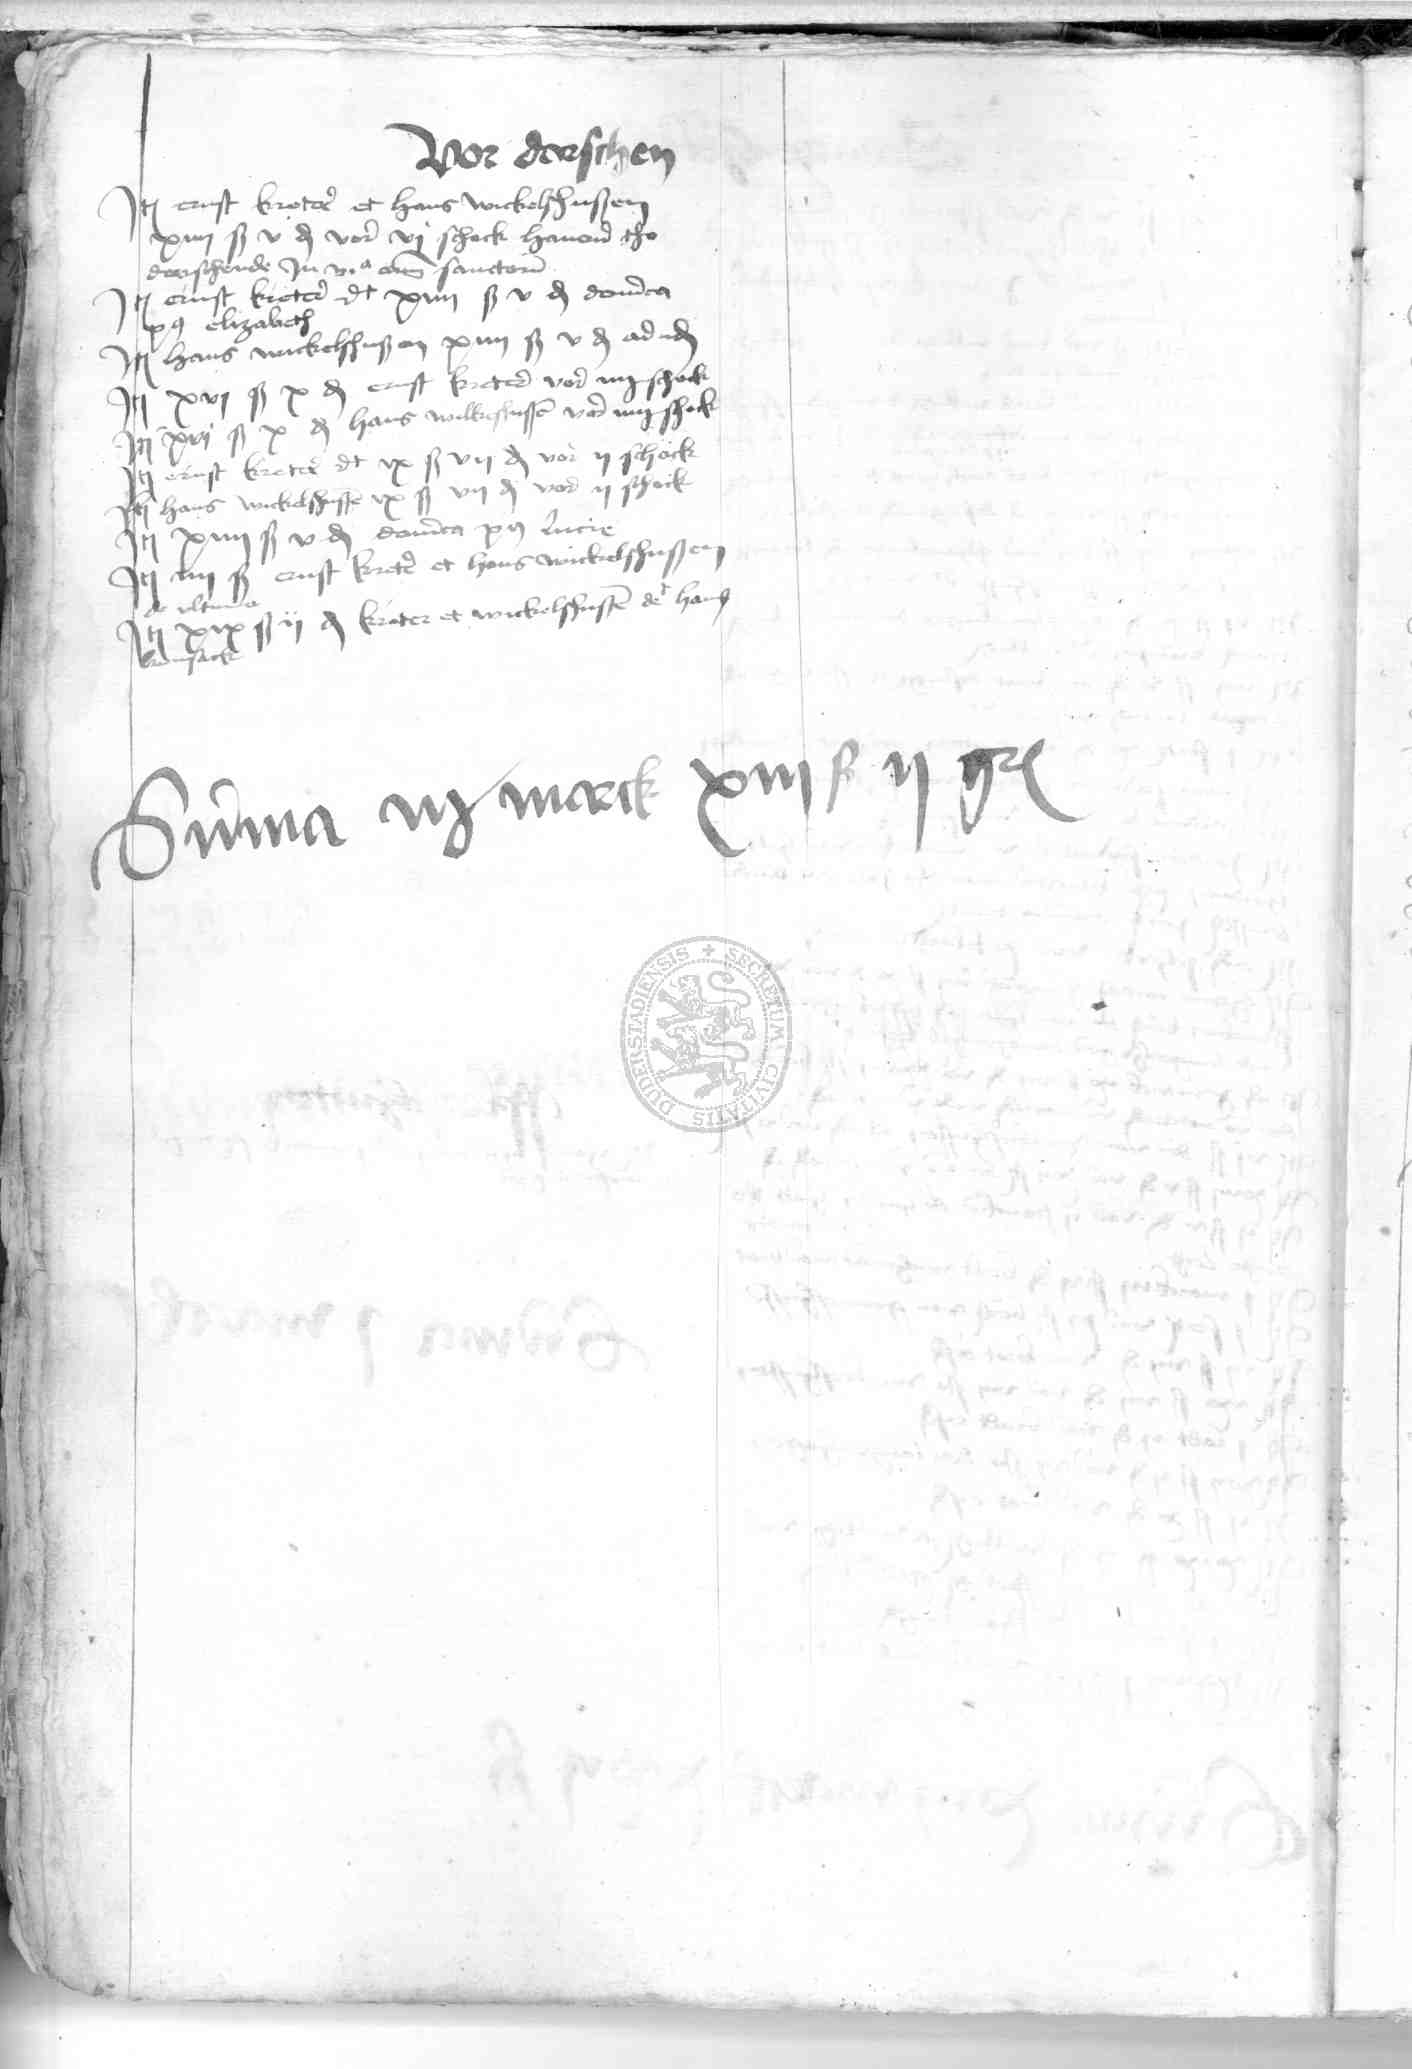 Vor derschen
It ernst kroter et hans wickelshußen
xiiii ß v d vor vj schock haveren tho
derschende In via omn sanctoru
It ernst kroter dt xiiii ß v d dominica
p9 elizabeth
It hans wickelshußen xiiii ß v d ad idem
It xvj ß x d ernst kroter vor iiij schock
It xvj ß x d hans wickelshußen vor iiij schock
It ernst kroter dt ix ß vii d vor ii schock
It hans wickelshußen ix ß vii d vor ii schock
It xiiii ß v d dominica p9 lucie
It iiii ß ernst kroter et hans wickelshußen
de ultima
It xix ß ii d kroter et wickelshußen det hans
Summa iij marck xiiij ß ii
SECRETUM CIVITATIS DUDERSTADIENSIS